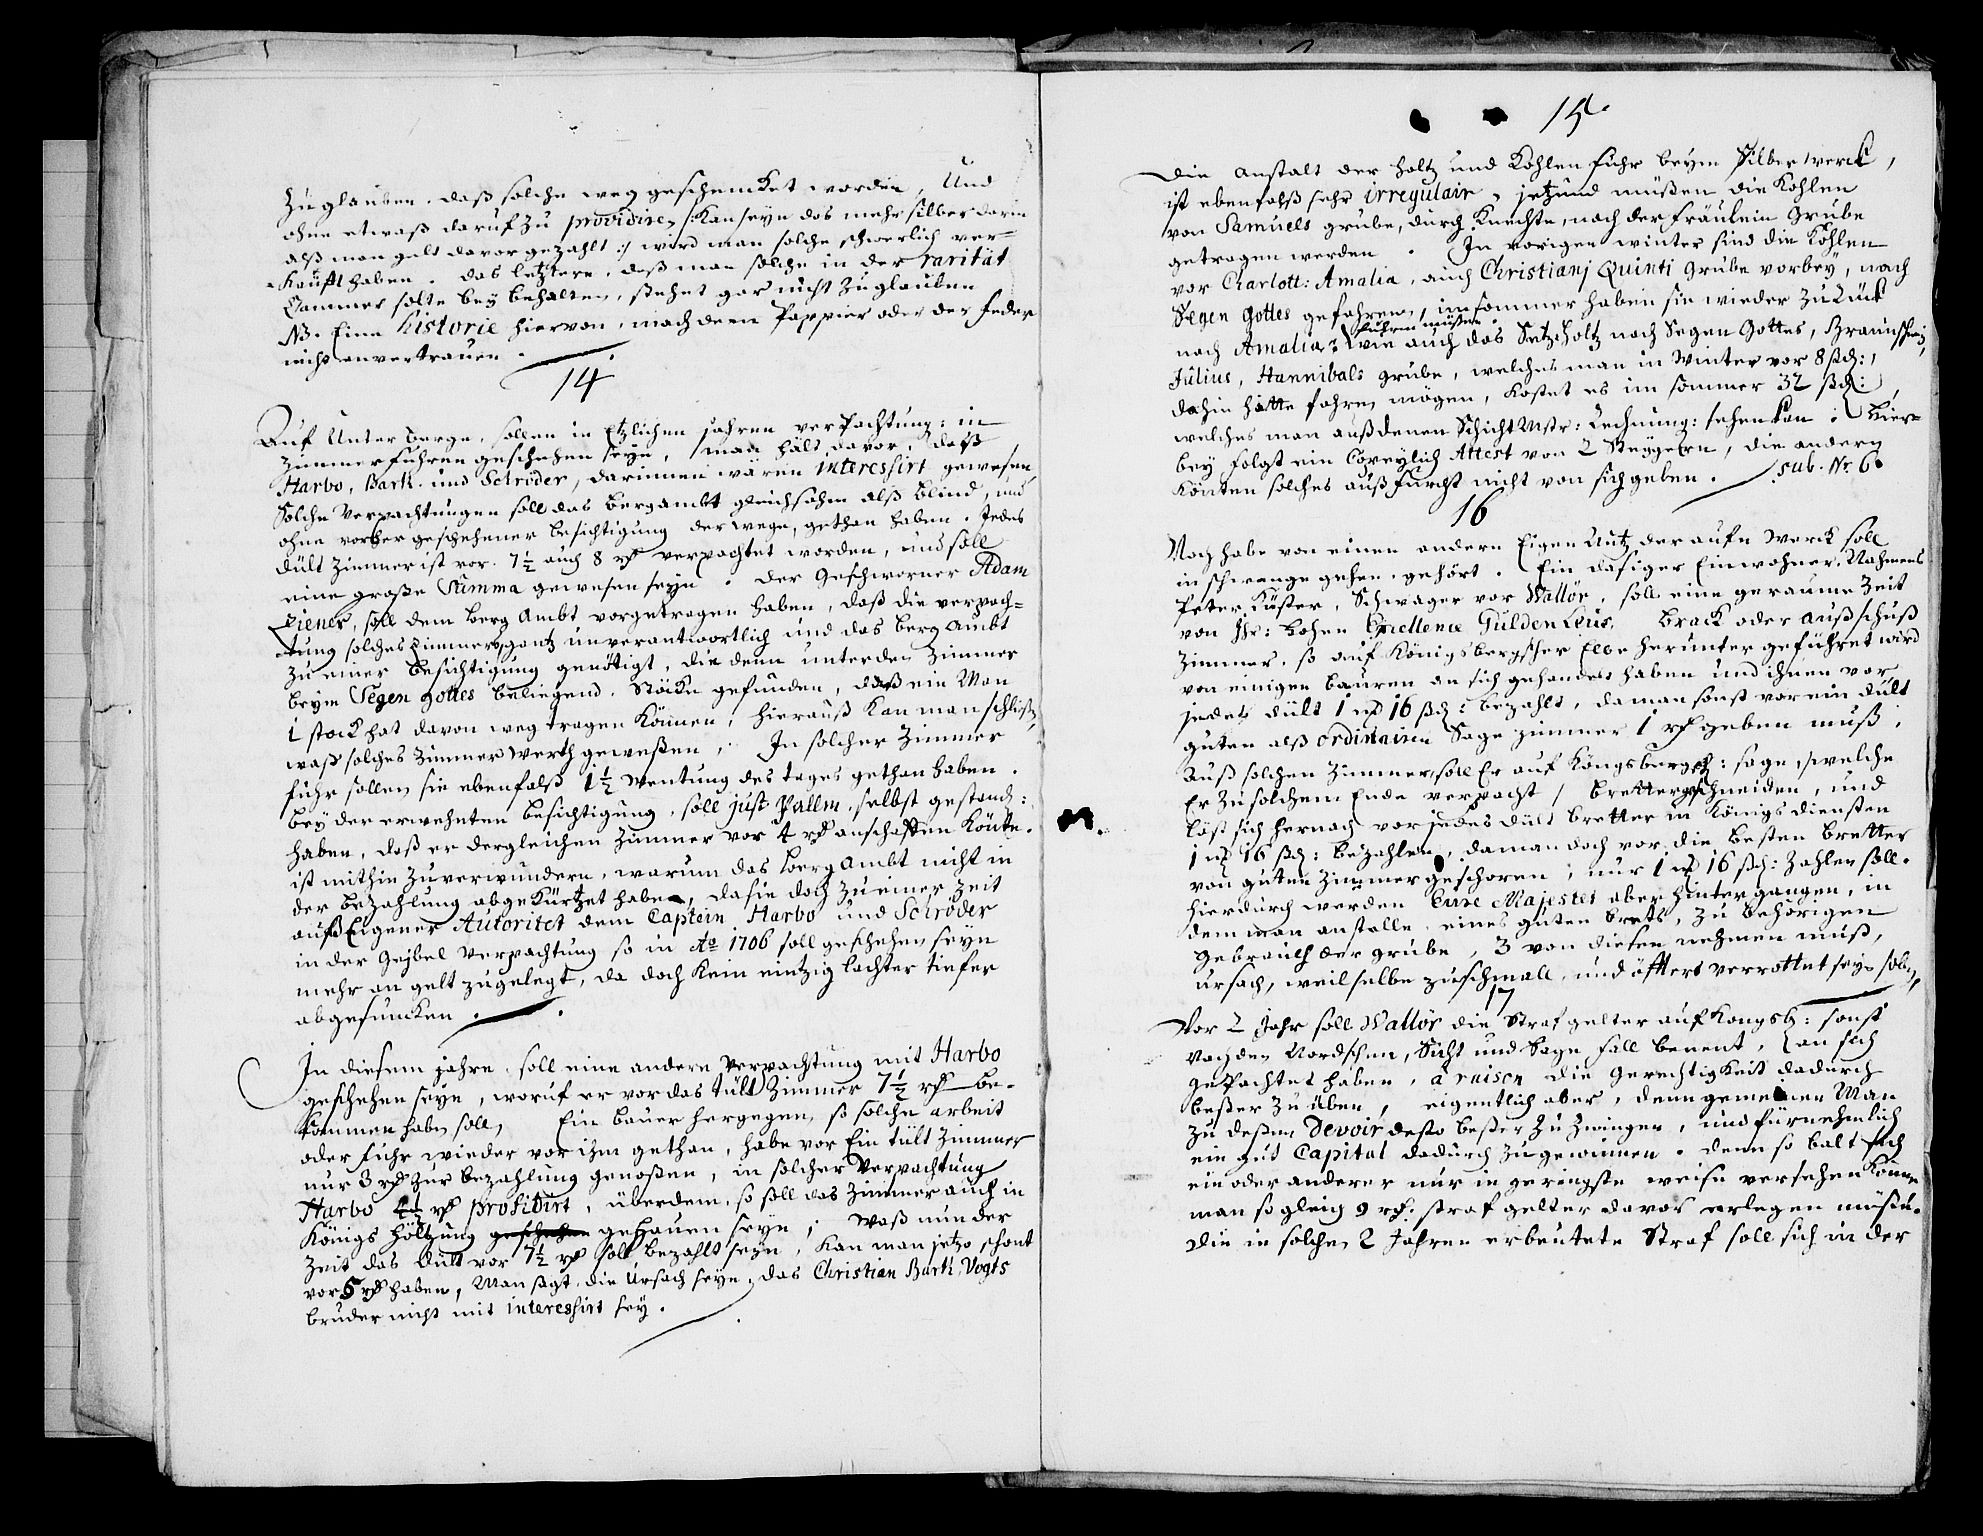 zu glauben, daß solche weg geschencket worden, Und
ohne etwaß daruf zu providiren /: Kan seyn das mehr silber darin
alß man gelt davor gezahlt :/ wird man solche schwerlich ver-
kaufft haben. das letztere, daß man solche in der rarität
Cammer solte bey behalten, stehet gar nicht zu glauben
NB. Eine historie hiervon, mach dem Pappier oder der feder
nicht anvertrauen.
14
Auf Unterberge, sollen in Etzlichen jahren verpachtung: in
Zimmerfuhren geschehen seyn, man hält davor, daß
Harbo, Barth. und Schröder, darinnen wären interessirt gewesen,
Solche Verpachtungen soll das Bergambt gleichsahm alß blind, und
ohne vorher geschehener besichtigung der wege, gethan haben. Jedes
dült Zimmer ist vor 7½ auch 8 rd verpachtet worden, und soll
eine große Summa gewesen seyn. Der Geschworner Adam
Ziener, soll dem Berg Ambt vorgetragen haben, daß die verpach-
tung solches Zimmers gantz unverantwortlich und das Berg Ambt
zu einer besichtigung genötigt, die denn unter den Zimmer
beym Segen gottes beliegend, Stöcke gefunden, daß ein Man
1 stock hat davon weg tragen können, hierauß kan man schließen,
waß solches Zimmer werth geweßen. In solcher Zimmer
fuhr sollen sie ebenfalß 1½ Wentung des tages gethan haben.
bey der erwehnten besichtigung, soll just Pallm, selbst gestand:
haben, daß er dergleichen Zimmer vor 4 rd anschaffen könte.
ist mithin zu verwundern, warum das Bergambt nicht in
der bezahlung abgekürtzet haben, da sie doch zu einer Zeit
auß Eigener Autoritet dem Captein Harbo und Schröder
in der Gejbel verpachtung so in Ao 1706 soll geschehen seyn
mehr an gelt zugelegt, da doch kein eintzig lachter tiefer
abgesuncken.
In diesem jahre, soll eine andere Verpachtung mit Harbo
geschehen seyn, woruf er vor das tült Zimmer 7½ rd be-
kommen haben soll, Ein bauer hergegen, so solche arbeit
oder fuhr wieder vor ihm gethan, habe vor Ein tült Zimmer
nur 3 rd zur bezahlung genoßen, in solcher Verpachtung
Harbo 4½ rd profitirt, überdem, so soll das Zimmer auch in
Königs höltzung geschehen gehauen seyn, Waß nun der
Zeit das Dült vor 7½ rd soll bezahlt seyn, kan man jetzo schont
vor 5 rd haben, Man sagt, die Ursach seye, das Christian Barth, Vogts
bruder nicht mit interessirt sey.
15
Die Anstalt der holtz und Kohlen fuhr beym Silber werck,
ist ebenfalß sehr irregulair, jetzund müßen die Kohlen
von Samuels grube, durch Knechte, nach der Fräulein Grube
getragen werden. In vorigen winter sind die Kohlen
vor Charlott: Amalia, auch Christianj Quinti Grube vorbey, nach
Segen Gottes gefahren, im sommer haben sie wieder zurück
führen müßen
nach Amalia, wie auch das Setzholtz nach Segen Gottes, Braunschweig,
Julius, Hannibals grube, welches man in Winter vor 8 ßd:,
dahin hätte fahren mögen, kostet es im sommer 32 ßd:
welches man auß denen Schicht Mstr: Rechnung: sehen kan. Hier-
bey folgt ein Copeylich Attest von 2 Steygern, die andern
könten solches auß furcht nicht von sich geben. sub. Nr. 6.
16
Noch habe von einen andern Eigen Nutz der aufn Werck soll
in schwange gehen, gehört. Ein dasiger Einwohner, Nahmens
Peter Küster, Schwager vor Wallör, soll eine geraume Zeit
von Ihr: hohen Excellence Gülden Leus, Brack oder außschuß
Zimmer, so auf Königsbergscher Elve herunter geführet wird
von einigen bauren an sich gehandelt haben und ihnen vor
jedes dült 1 md 16 ßd: bezahlt, da man sonst vor ein dült
guten alß ordinairen Sage zimmer 1 rd geben muß,
Auß solchen Zimmer, soll Er auf Kongsbergs: sage, /welche
Er zu solchem Ende verpacht/ bretter schneiden, und
läst sich hernach vor jedes dült bretter in Königs diensten
1 md 16 ßd: bezahlen, da man doch vor die besten bretter
von guten Zimmer geschoren, nur 1 md 16 ßd: zahlen soll.
hierdurch werden Eure Majestet aber hintergangen, in
dem man anstalle, eines guten brets, zu behörigen
gebrauch der grube, 3 von diesen nehmen muß,
ursach, weil selbe zu schmall, und öffters verrottet seyn sollen,
17
Vor 2 Jahr soll Wallör die Straf gelter auf Kongsb: sonst
nach den Nordschen, Sicht und Sage fall benent, an sich
gepachtet haben, à raison die Gerechtigkeit dadurch
beßer zu üben, eigentlich aber, denn gemeinen Man
zu deßen Devoir desto beßer zu zwingen, und fürnehmlich
ein gut Capital dadurch zu gewinnen. denn so balt sich
ein oder anderer nur in geringste weise versehen können
man so gleich 9 rd: straf gelter davor erlegen müßen.
Die in solchen 2 Jahren erbeutete Straf soll sich in der